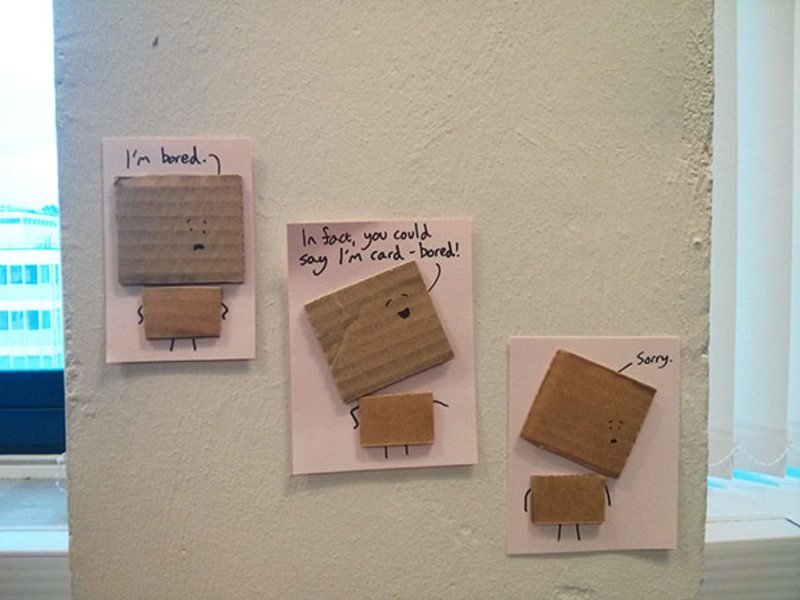 I'm bored.
In fact, you could
say I'm card-bored!
Sorry.